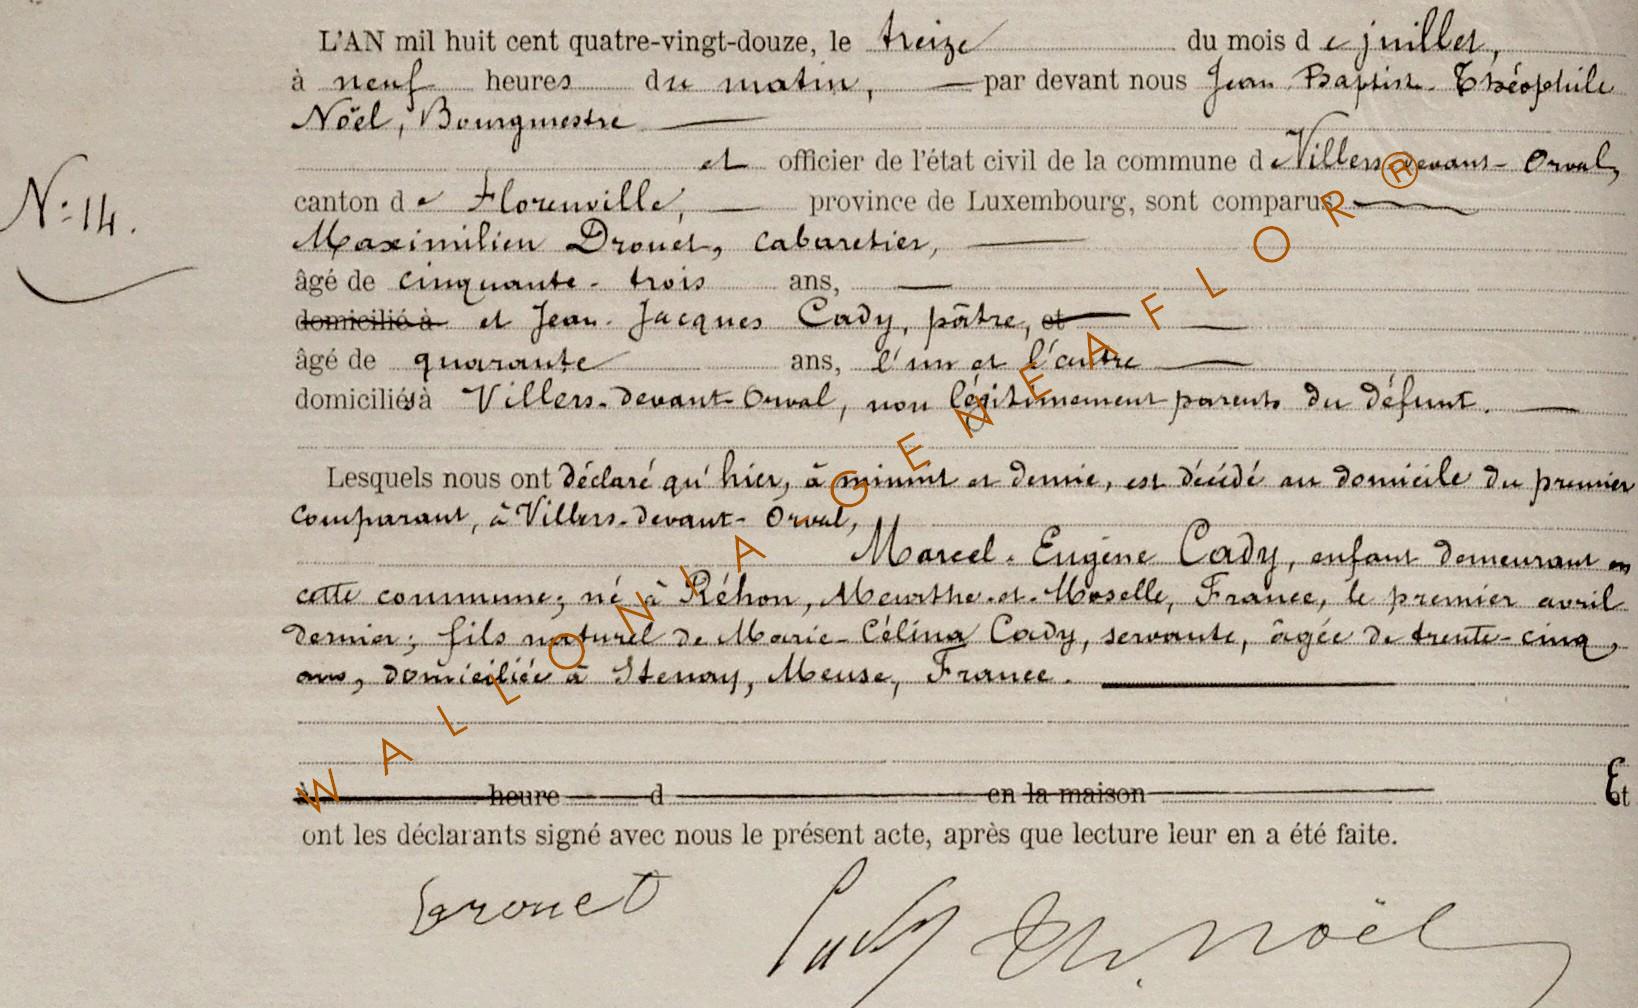 L'AN mil huit cent quatre-vingt-douze, le treize du mois de juillet,
à neuf heures du matin, par devant nous Jean Baptist. Théophile
Noël, Bourgmestre
et officier de l'état civil de la commune de Villers-devant-Orval,
N° 14.
canton de Florenville, province de Luxembourg, sont comparus
Maximilien Drouet, cabaretier,
âgé de cinquante-trois ans,
domicilié à et Jean-Jacques Cady, pâtre, et
âgé de quarante ans, l'un et l'autre
domiciliés à Villers-devant-Orval, non légitimement parents du défunt.
Lesquels nous ont déclaré qu'hier, à minuit et demie, est décédé au domicile du premier
comparant, à Villers-devant-Orval,
Marcel-Eugène Cady, enfant demeurant en
cette commune; né à Réhon, Meurthe-et-Moselle, France, le premier avril
dernier; fils naturel de Marie-Célina Cady, servante, âgée de trente-cinq
ans, domiciliée à Stenay, Meuse, France.
à heure d en la maison Et
ont les déclarants signé avec nous le présent acte, après que lecture leur en a été faite.
Drouet Cady Th. Noël
WALLONIA GENEAFLOR®